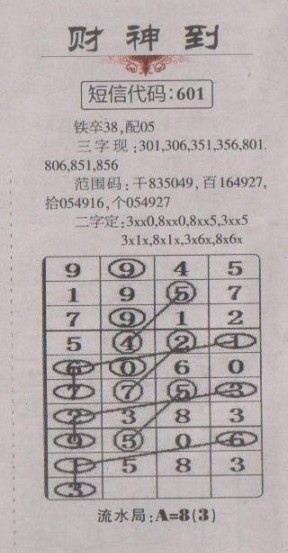 财神到
短信代码:601
铁卒38,配05
三字现:301,306,351,356,801.
806,851,856
范围码:千835049,百164927,
拾054916,个054927
二字定:3xx0,8xx0,8xx5,3xx5
3x1x,8x1x,3x6x,8x6x
9 9 4 5
1 9 5 7
7 9 1 2
5 4 2 1
6 0 6 0
7 7 5 3
2 3 8 3
9 5 0 6
1 5 8 3
3
流水局:A=8(3)